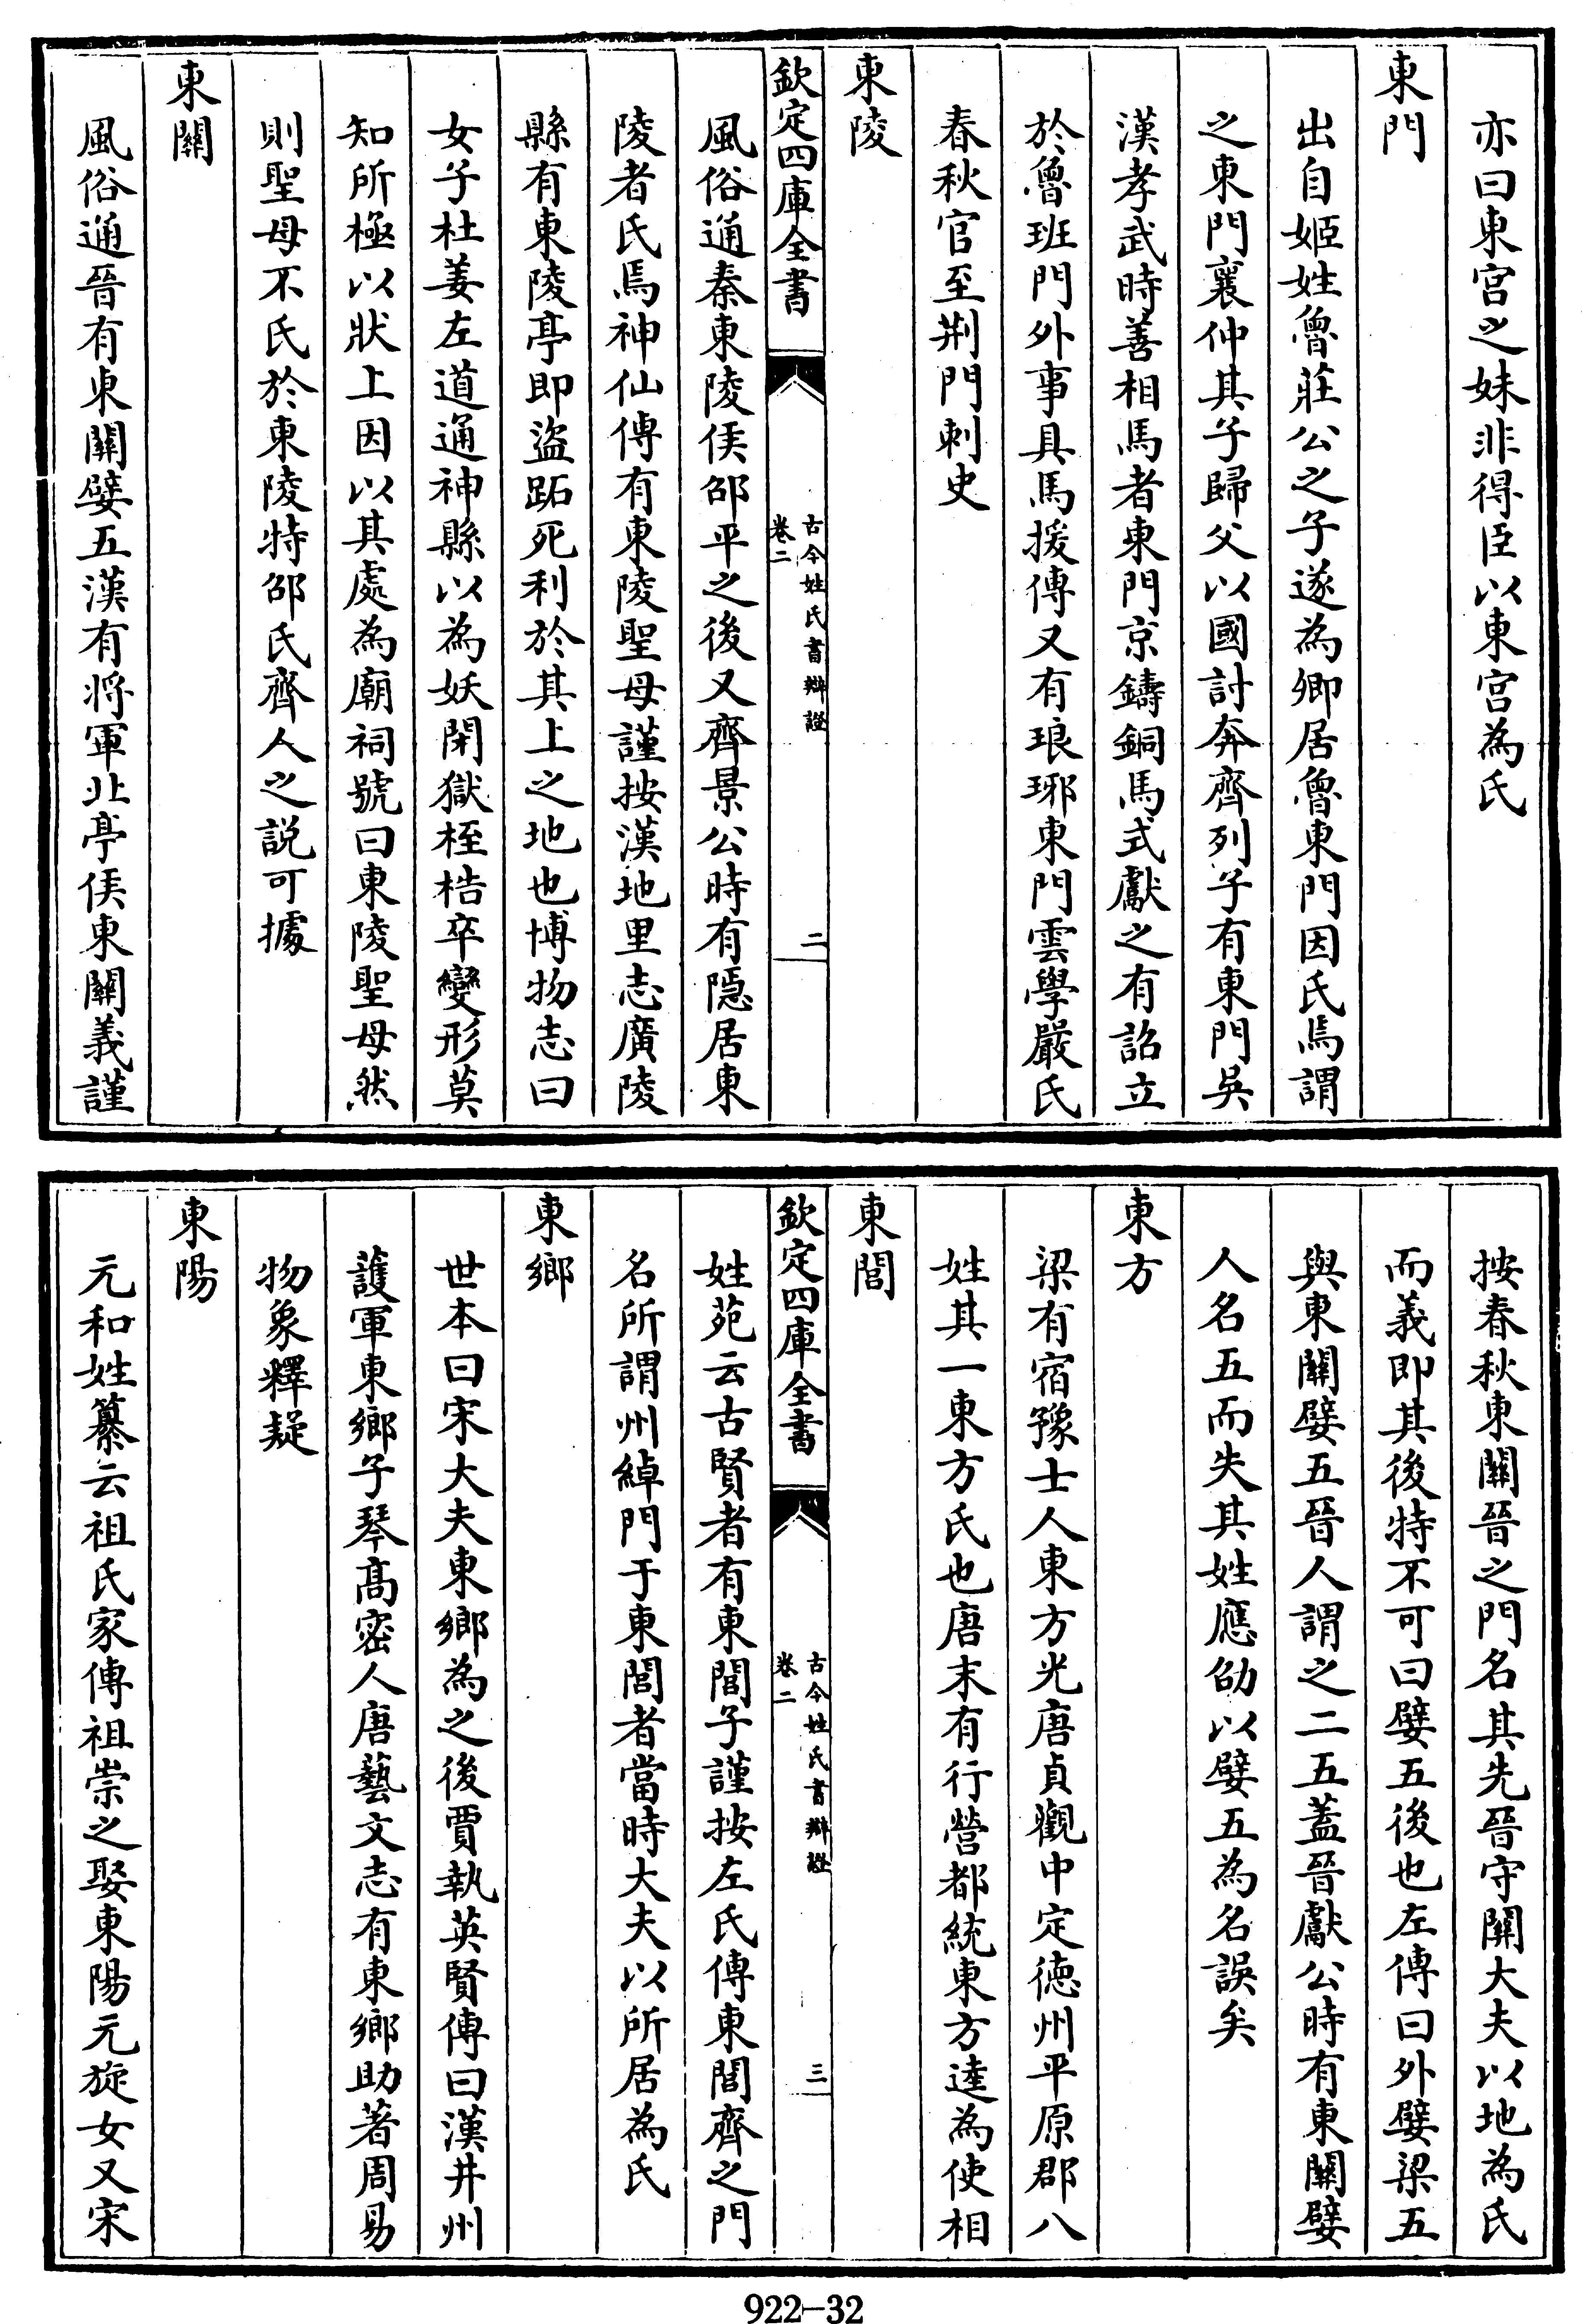 亦曰東宫之妹非得臣以東宫為氏
東門
出自姬姓魯莊公之子遂為卿居魯東門因氏焉謂
之東門襄仲其子歸父以國討奔齊列子有東門吳
漢孝武時善相馬者東門京鑄銅馬式獻之有詔立
於魯班門外事具馬援傳又有琅琊東門雲學嚴氏
春秋官至荆門刺史
東陵
欽定四庫全書
古今姓氏書辯證
卷二
二
風俗通秦東陵侯邵平之後又齊景公時有隱居東
陵者氏焉神仙傳有東陵聖母謹按漢地里志廣陵
縣有東陵亭即盜跖死利於其上之地也博物志曰
女子杜姜左道通神縣以為妖閉獄桎梏卒變形莫
知所極以狀上因以其處為廟祠號曰東陵聖母然
則聖母不氏於東陵特邵氏齊人之説可據
東關
風俗通晉有東關嬖五漢有將軍北亭侯東關義謹
按春秋東關晉之門名其先晉守關大夫以地為氏
而義即其後特不可曰嬖五後也左傳曰外嬖梁五
與東關嬖五晉人謂之二五蓋晉獻公時有東關嬖
人名五而失其姓應劭以嬖五為名誤矣
東方
梁有宿豫士人東方光唐貞觀中定德州平原郡八
姓其一東方氏也唐末有行營都統東方逵為使相
東閭
欽定四庫全書
古今姓氏書辯證
卷二
三
姓苑云古賢者有東閭子謹按左氏傳東閭齊之門
名所謂州綽門于東閭者當時大夫以所居為氏
東鄉
世本曰宋大夫東鄉為之後賈執英賢傳曰漢幷州
護軍東鄉子琴髙密人唐藝文志有東鄉助著周易
物象釋疑
東陽
元和姓纂云祖氏家傳祖崇之娶東陽元旋女又宋
922-32